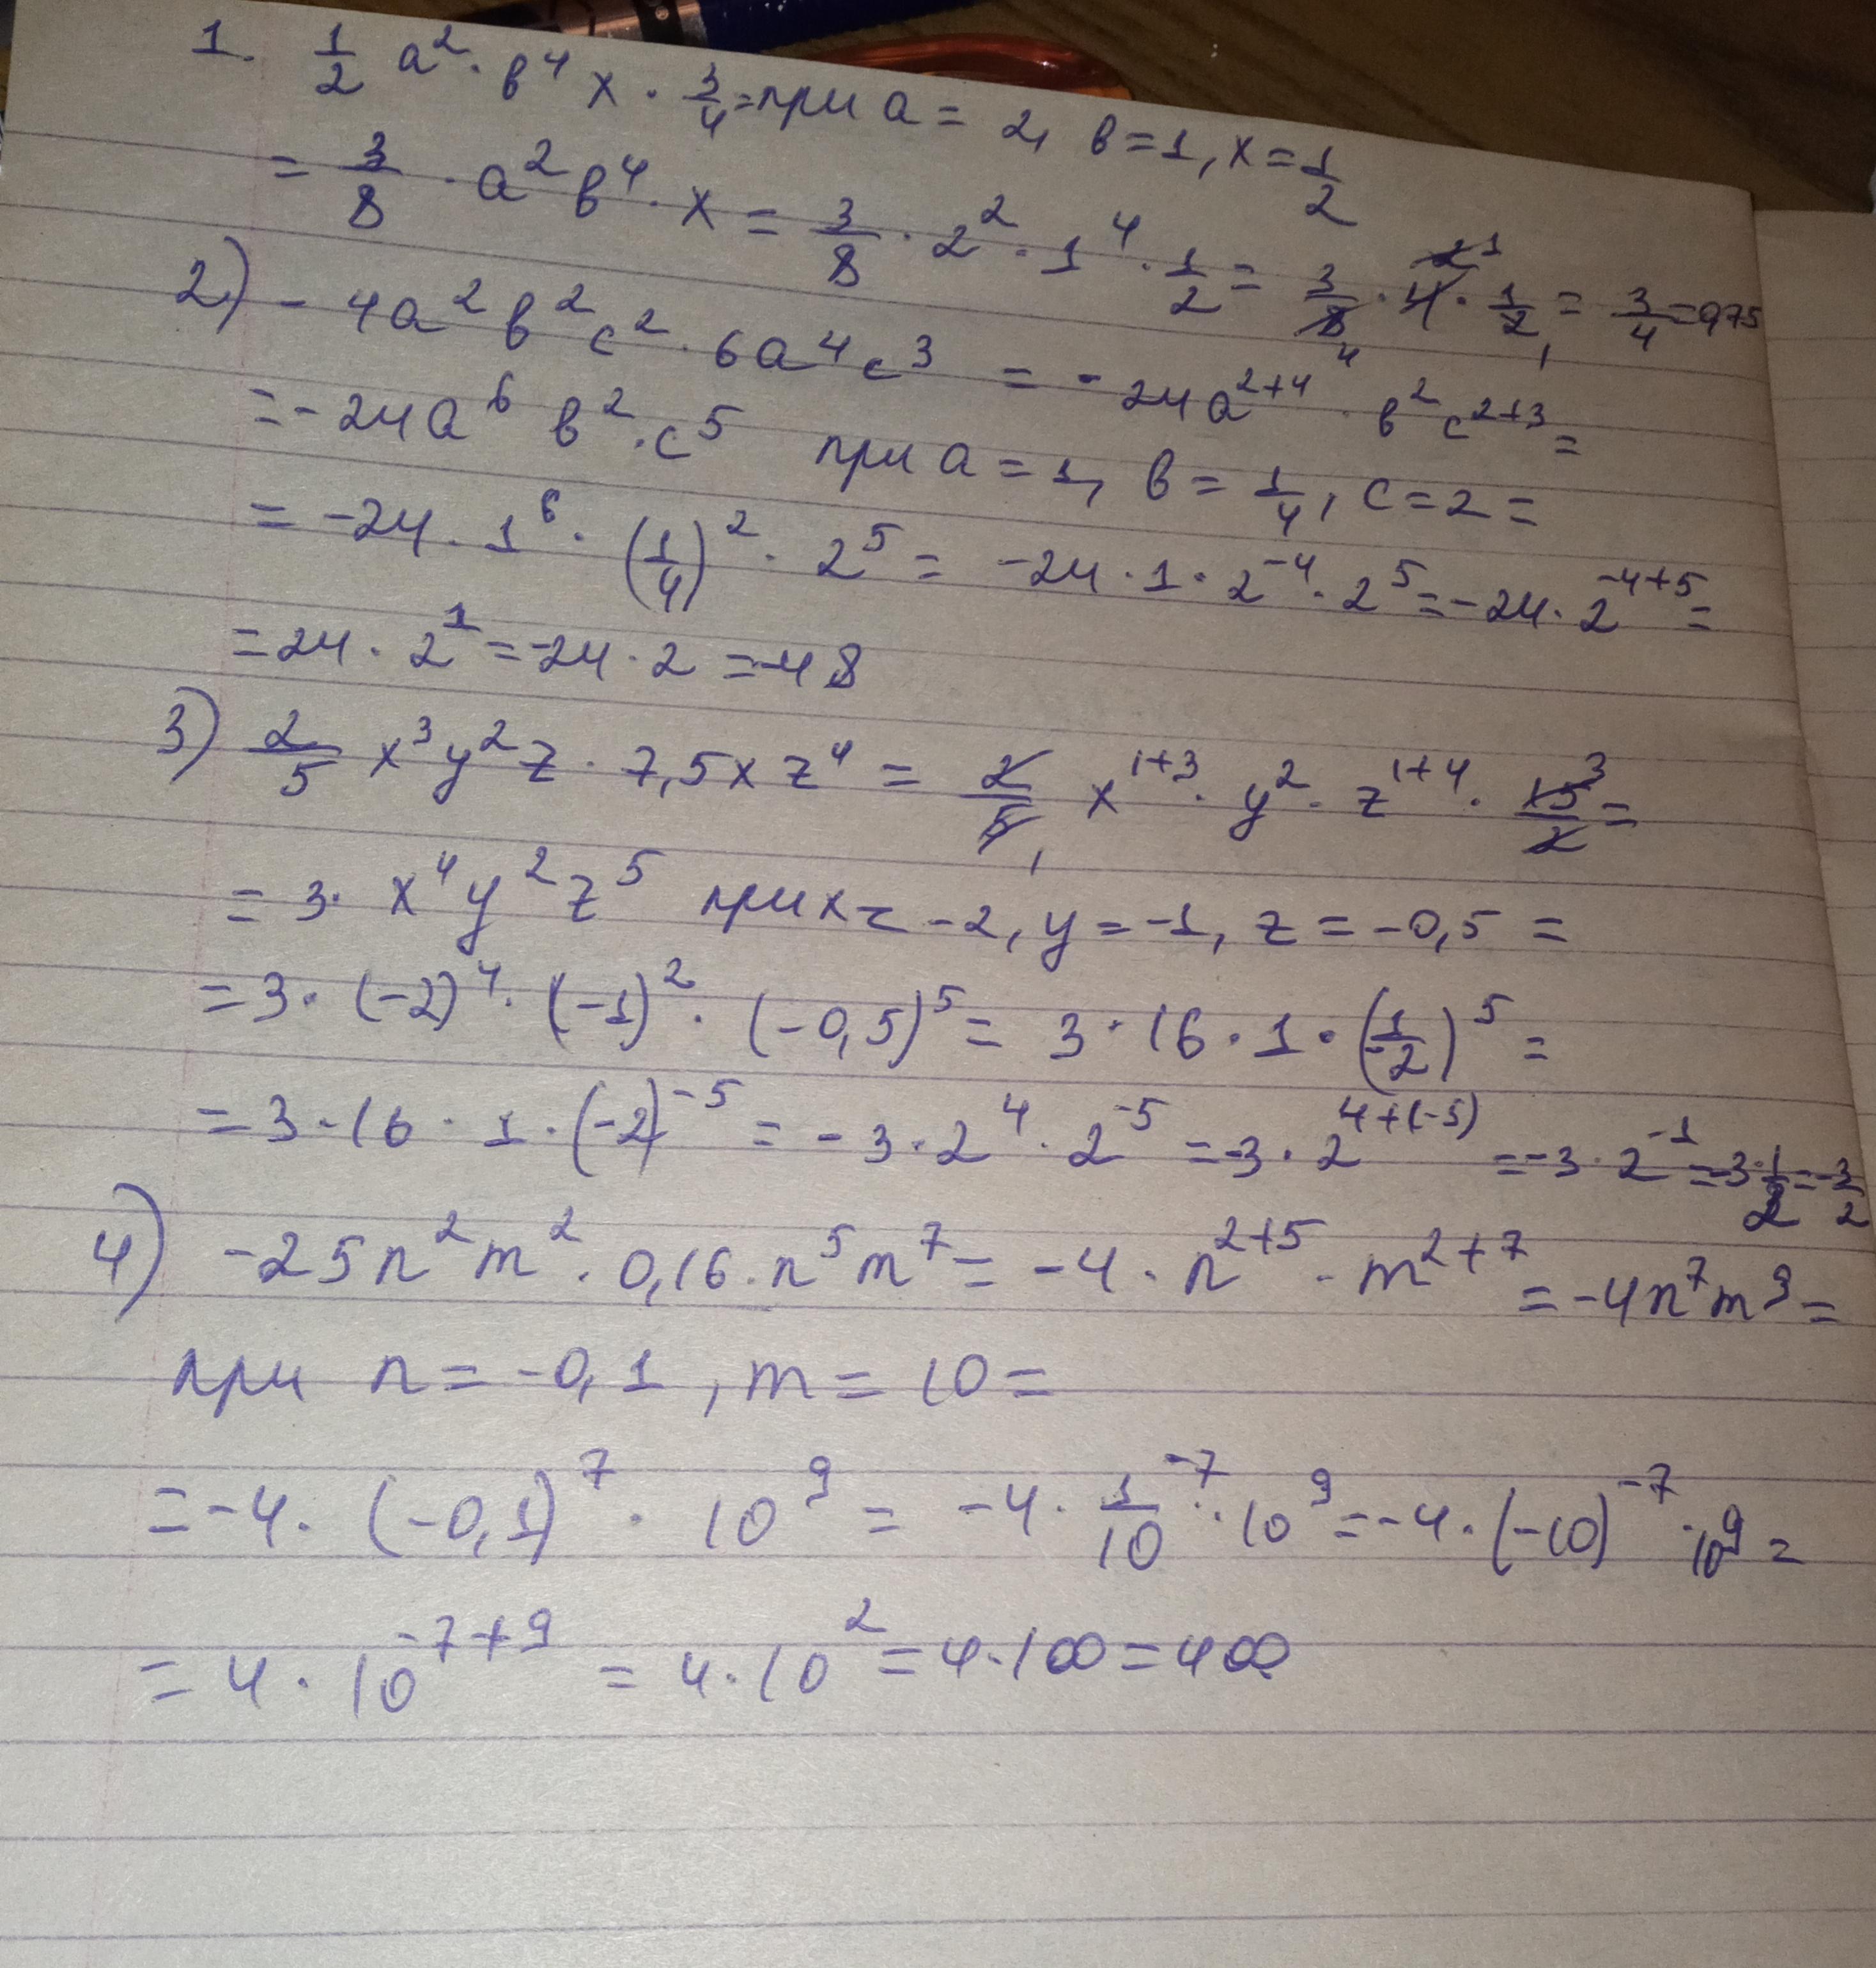 1. 1/2 a² · b⁴ x · 3/4 = при a = 2, b = 1, x = 1/2
= 3/8 · a² b⁴ · x = 3/8 · 2² · 1⁴ · 1/2 = 3/8 · 4 · 1/2 = 3/4 = 0,75
2) - 4a² b² c² · 6a⁴ c³ = - 24a²⁺⁴ · b² c²⁺³ =
= - 24a⁶ b² · c⁵ при a = 1, b = 1/4, c = 2 =
= -24 · 1⁶ · (1/4)² · 2⁵ = -24 · 1 · 2⁻⁴ · 2⁵ = -24 · 2⁻⁴⁺⁵ =
= 24 · 2¹ = -24 · 2 = -48
3) 2/5 x³ y² z · 7,5 x z⁴ = 2/5 x¹⁺³ · y² · z¹⁺⁴ · 15/2 =
= 3 · x⁴ y² z⁵ при x = -2, y = -1, z = -0,5 =
= 3 · (-2)⁴ · (-1)² · (-0,5)⁵ = 3 · 16 · 1 · (-1/2)⁵ =
= 3 · 16 · 1 · (-2)⁻⁵ = - 3 · 2⁴ · 2⁻⁵ = -3 · 2⁴⁺⁽⁻⁵⁾ = -3 · 2⁻¹ = -3 · 1/2 = -3/2
4) -25n² m² · 0,16 · n⁵ m⁷ = -4 · n²⁺⁵ · m²⁺⁷ = -4n⁷ m⁹ =
при n = -0,1, m = 10 =
= -4 · (-0,1)⁷ · 10⁹ = -4 · 1/10⁻⁷ · 10⁹ = -4 · (-10)⁻⁷ · 10⁹ =
= 4 · 10⁻⁷⁺⁹ = 4 · 10² = 4 · 100 = 400